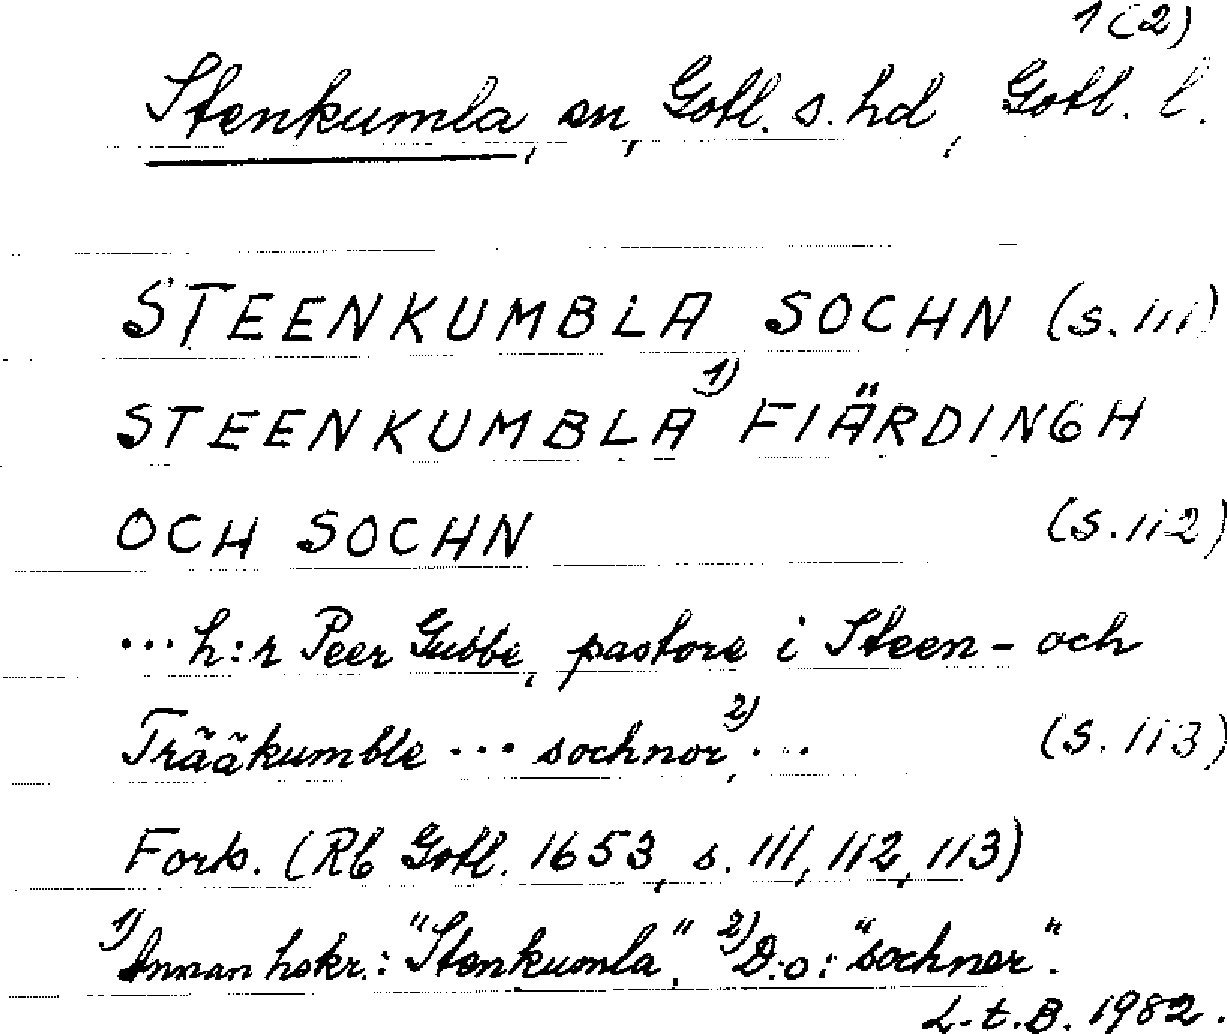 1(2)
Stenkumla, sn, Gotl. s. hd, Gotl. l.
STEENKUMBLA SOCHN (s. 111)
STEENKUMBLA 1) FIÄRDINGH
OCH SOCHN (s. 112)
... h:r Peer Gubbe, pastore i Steen- och
Trääkumble ... sochnor, 2) ... (s. 113)
Forts. (Rb Gotl. 1653, s. 111, 112, 113)
1) Annan hskr.: "Stenkumla". 2) D:o: "sochner".
L.t.B. 1982.